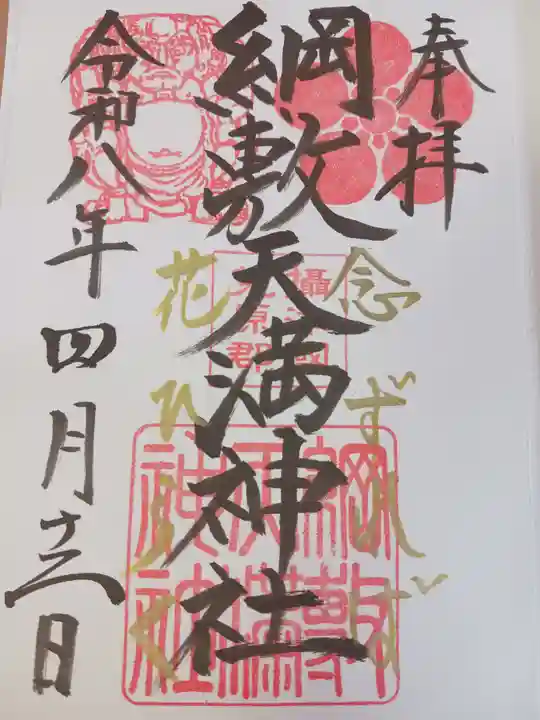 奉拝
綱敷天満神社
令和八年四月十日
念ずれば
花ひらく
攝津國
菟原郡
綱敷
天満
神社